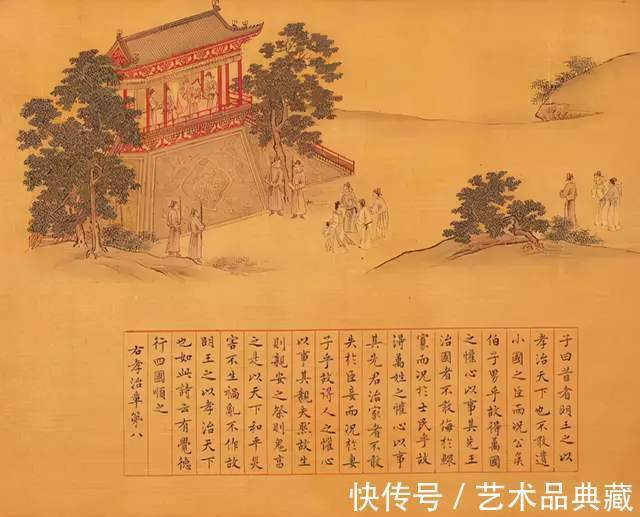 子曰昔者明王之以
孝治天下也不敢遺
小國之臣而況公侯
伯子男乎故得萬國
之懽心以事其先王
治國者不敢侮於鰥
寡而況於士民乎故
得萬姓之懽心以事
其先君治家者不敢
失於臣妾而況於妻
子乎故得人之懽心
以事其親夫然故生
則親安之祭則鬼享
之是以天下和平災
害不生禍亂不作故
明王之以孝治天下
也如此詩云有覺德
行四國順之
右孝治章第八
快传号/艺术品典藏